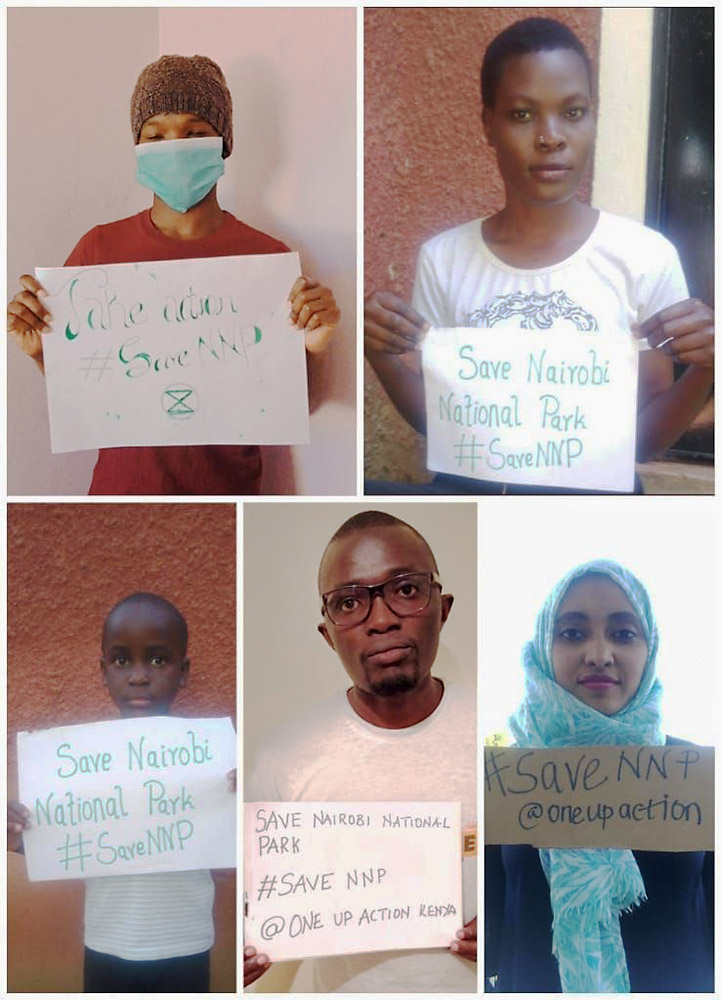 Take action
#SaveNNP
Save Nairobi
National Park
#SaveNNP
Save Nairobi
National Park
#SaveNNP
SAVE NAIROBI NATIONAL
PARK
#SAVE NNP
@ONE UP ACTION KENYA
E
#SaveNNP
@oneupaction